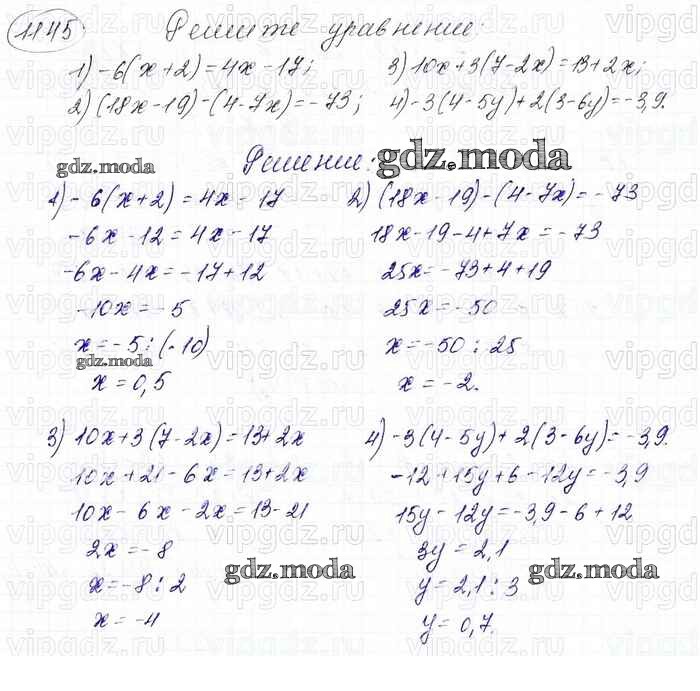 1145. Решите уравнение:
1) -6(x+2)=4x-17; 3) 10x+3(7-2x)=13+2x;
2) (18x-19)-(4-7x)=-73; 4) -3(4-5y)+2(3-6y)=-3,9.
gdz.moda Решение: gdz.moda
1) -6(x+2)=4x-17
-6x-12=4x-17
-6x-4x=-17+12
-10x=-5
x=-5:(-10)
gdz.moda
x=0,5
2) (18x-19)-(4-7x)=-73
18x-19-4+7x=-73
25x=-73+4+19
25x=-50
x=-50:25
x=-2.
3) 10x+3(7-2x)=13+2x
10x+21-6x=13+2x
10x-6x-2x=13-21
2x=-8
x=-8:2
x=-4
gdz.moda
4) -3(4-5y)+2(3-6y)=-3,9.
-12+15y+6-12y=-3,9
15y-12y=-3,9-6+12
3y=2,1
y=2,1:3
y=0,7.
gdz.moda
vipgdz.ru